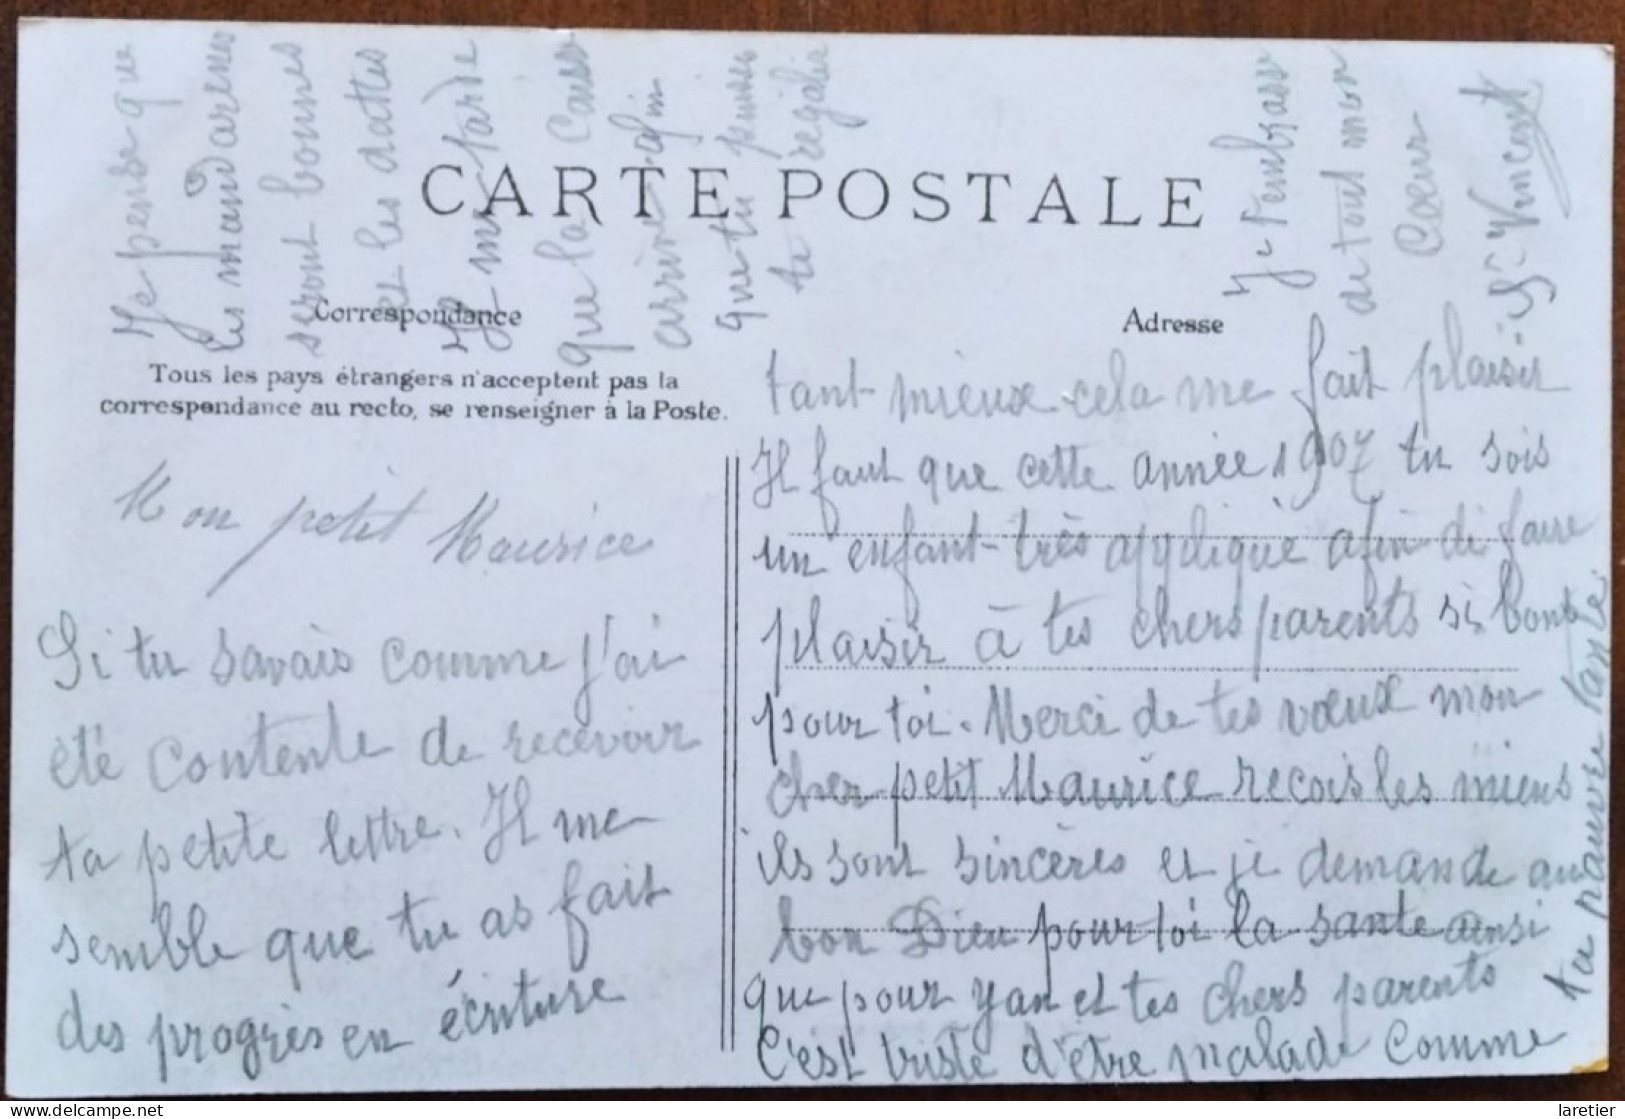 CARTE POSTALE
Correspondance
Adresse
Tous les pays étrangers n'acceptent pas la
correspondance au recto, se renseigner à la Poste.
Mon petit Maurice
Si tu savais comme j'ai
été contente de recevoir
ta petite lettre. Il me
semble que tu as fait
des progrès en écriture
tant mieux cela me fait plaisir
Il faut que cette année 1907 tu sois
un enfant très appliqué afin di faire
plaisir à tes chers parents si bons
pour toi. Merci de tes vœux mon
cher petit Maurice recois les miens
ils sont sincères et je demande au
bon Dieu pour toi la sante ainsi
que pour yan et tes chers parents
C'est triste d'être malade comme
ta pauvre tante.
Je pense que
les mandarenes
seront bonnes
et les dattes
Il me tarde
que la caisse
arrive afin
que tu puisses
te regaler
Je t'embrasse
de tout mon
Cœur
St Vincent
laretier